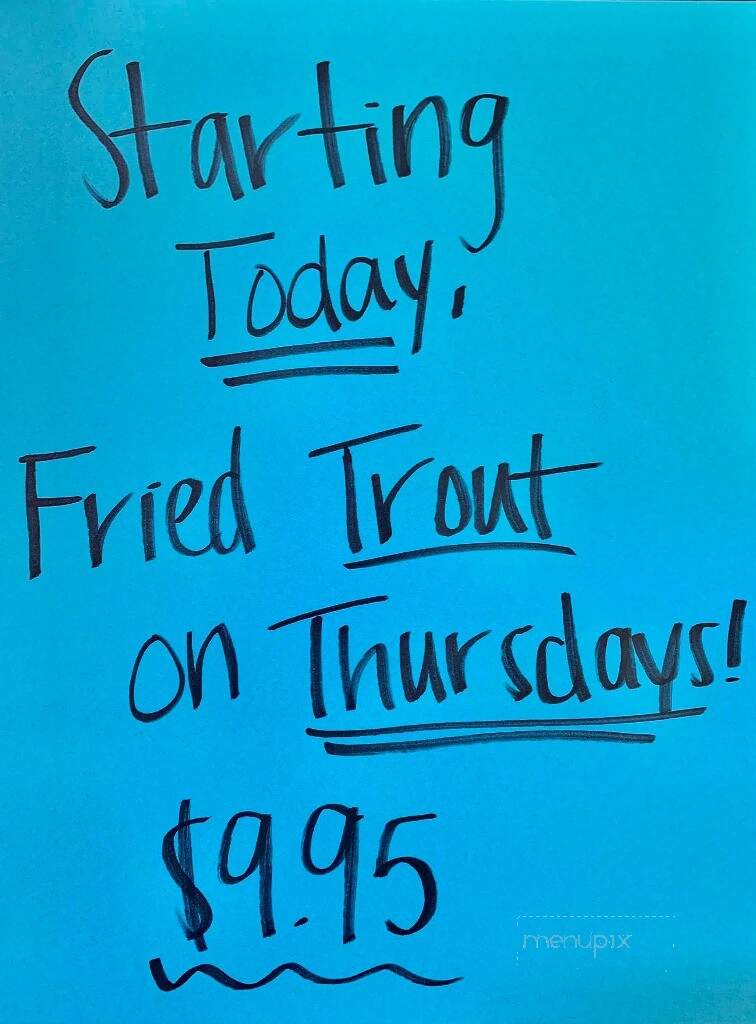 Starting
Today,
Fried Trout
on Thursdays!
$9.95
menupix